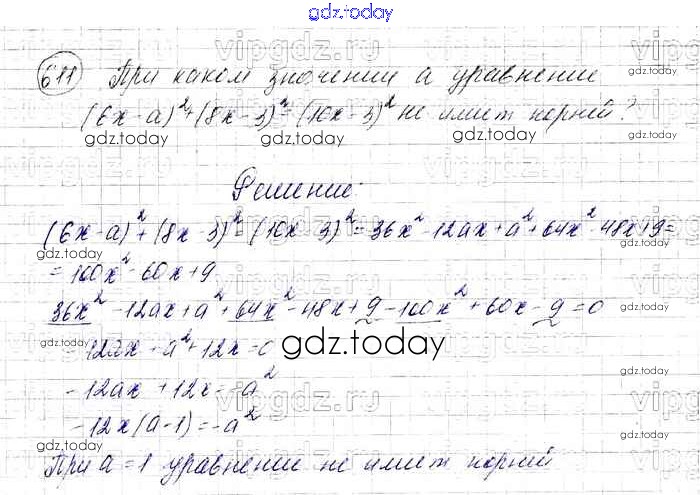 gdz.today
611 При каком значении а уравнение
(6x-a)²+(8x-3)²=(10x-3)² не имеет корней?
gdz.today gdz.today gdz.today
Решение.
(6x-a)²+(8x-3)²=(10x-3)²=36x²-12ax+a²+64x²-48x+9=
=100x²-60x+9
gdz.today gdz.today
36x²-12ax+a²+64x²-48x+9-100x²+60x-9=0
-12ax+a²+12x=0
gdz.today
-12ax+12x=-a²
-12x(a-1)=-a²
gdz.today gdz.today
При a=1 уравнение не имеет корней